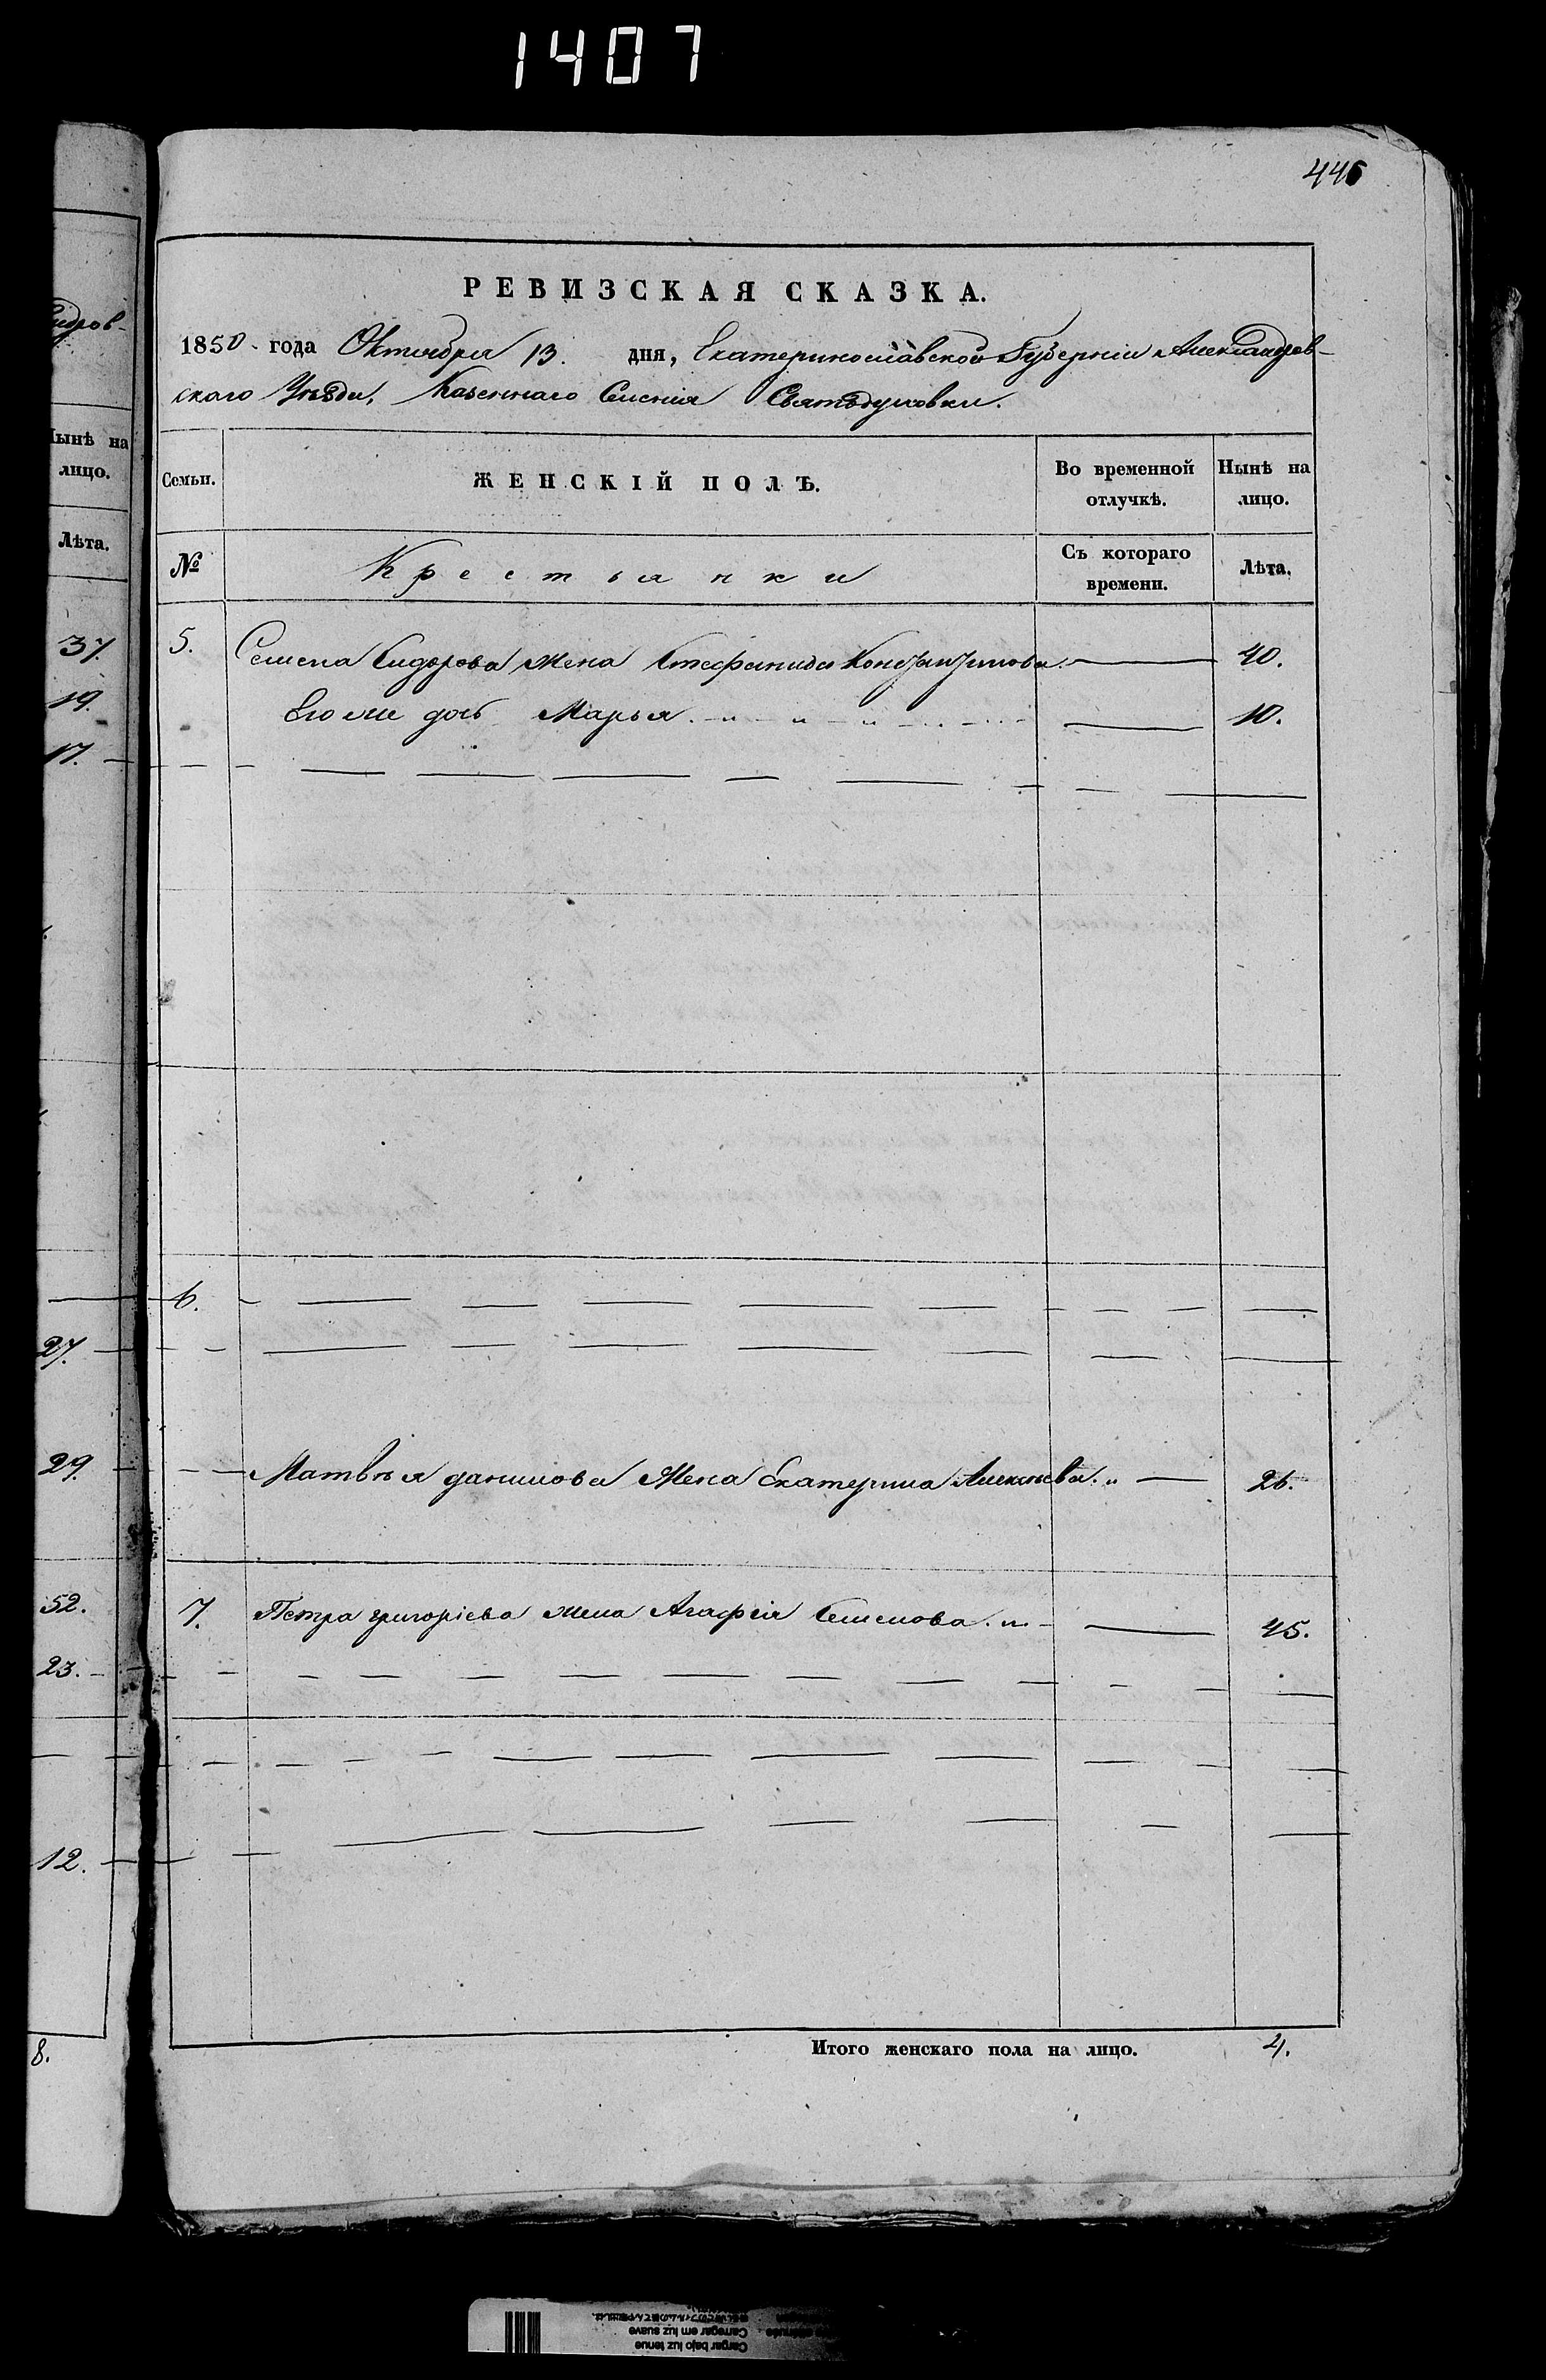 1407
446
РЕВИЗСКАЯ СКАЗКА.
1850 года Октября 13. дня, Екатеринославской Губерніи Александров-
скаго Уѣзда, Казеннаго Селенія Святодуховки.
Семьи. ЖЕНСКІЙ ПОЛЪ. Во временной отлучкѣ. Нынѣ на лицо.
№ Крестьянки Съ котораго времени. Лѣта.
5. Семена Сидорова жена Стефанида Константинова. 40.
Его же дочь Марья. 10.
6.
Матвѣя Данилова жена Екатерина Алексѣева. 26.
7. Петра Григорієва жена Агафія Семенова. 45.
Итого женскаго пола на лицо. 4.
Нынѣ на
лицо.
Лѣта.
37.
19.
17.
27.
29.
52.
23.
12.
8.
Carregar em luz suave
Cargar bajo luz tenue